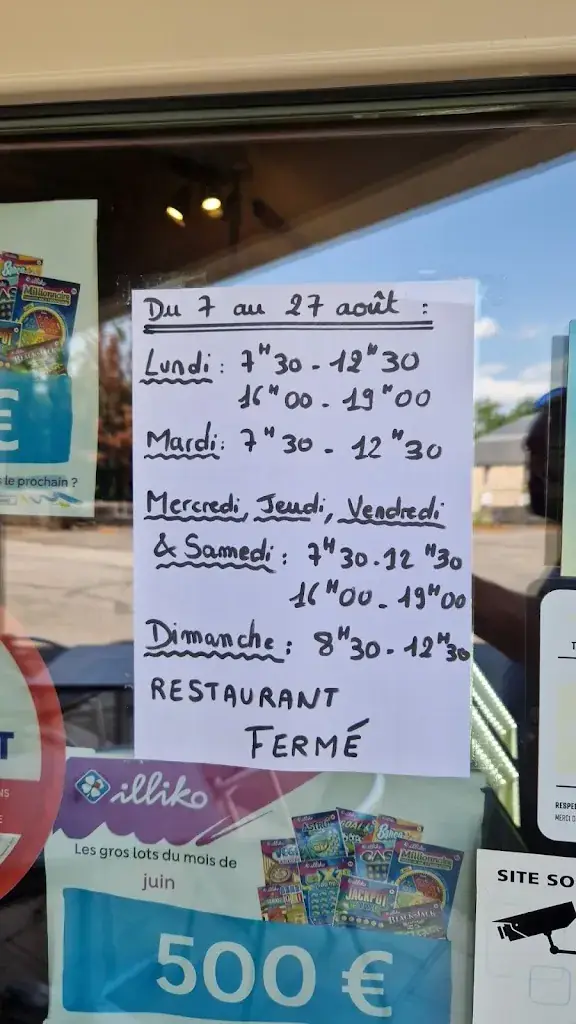 Du 7 au 27 août :
Lundi : 7H30 - 12H30
16H00 - 19H00
Mardi : 7H30 - 12H30
Mercredi, Jeudi, Vendredi
& Samedi : 7H30 - 12H30
16H00 - 19H00
Dimanche : 8H30 - 12H30
RESTAURANT
FERMÉ
€
le prochain ?
illiko
Les gros lots du mois de
juin
500 €
ASTRO
Millionnaire
JACKPOT
BLACKJACK
SITE SO